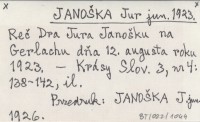 x JANOŠKA Jur jun. 1923. x
Reč Dra Jura Janošku na
Gerlachu dňa 12. augusta roku
1923, — Krásy Slov. 3, nr 4:
138-142, il.
Przedruk: JANOŠKA J. jun.
1926.